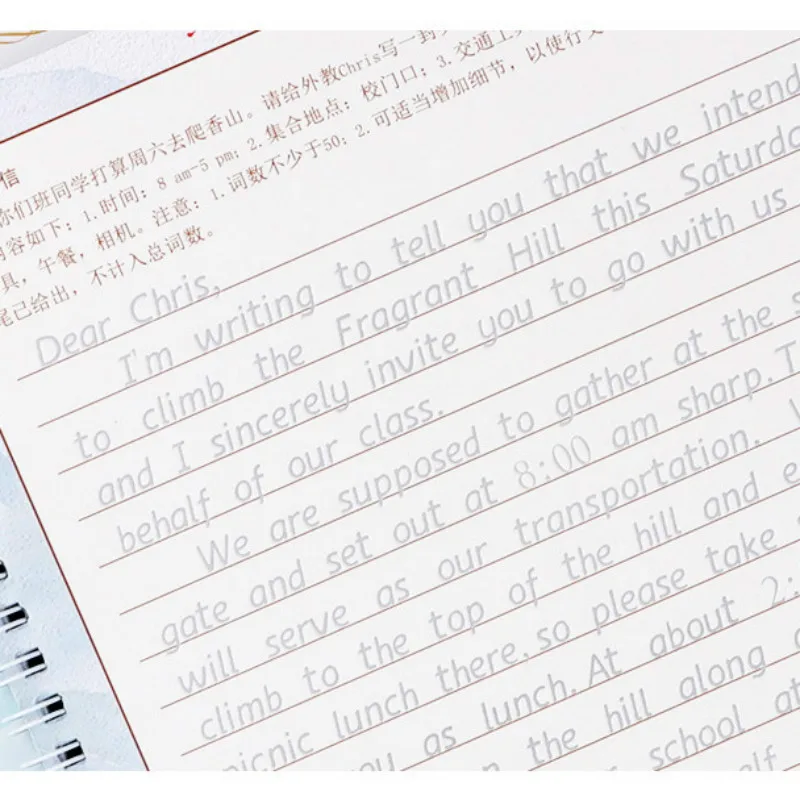 信
你们班同学打算周六去爬香山。请给外教Chris写一封
内容如下：1.时间：8 am-5 pm；2.集合地点：校门口；3.交通工
具，午餐，相机。注意：1.词数不少于50；2.可适当增加细节，以使行文
尾已给出，不计入总词数。
Dear Chris,
I'm writing to tell you that we intend
to climb the Fragrant Hill this
and I sincerely invite you to go with us
behalf of our class.
We are supposed to gather at the
gate and set out at 8:00 am sharp.
will serve as our transportation.
climb to the top of the hill and
picnic lunch there, so please take
as lunch. At about 2:
the hill along
school at